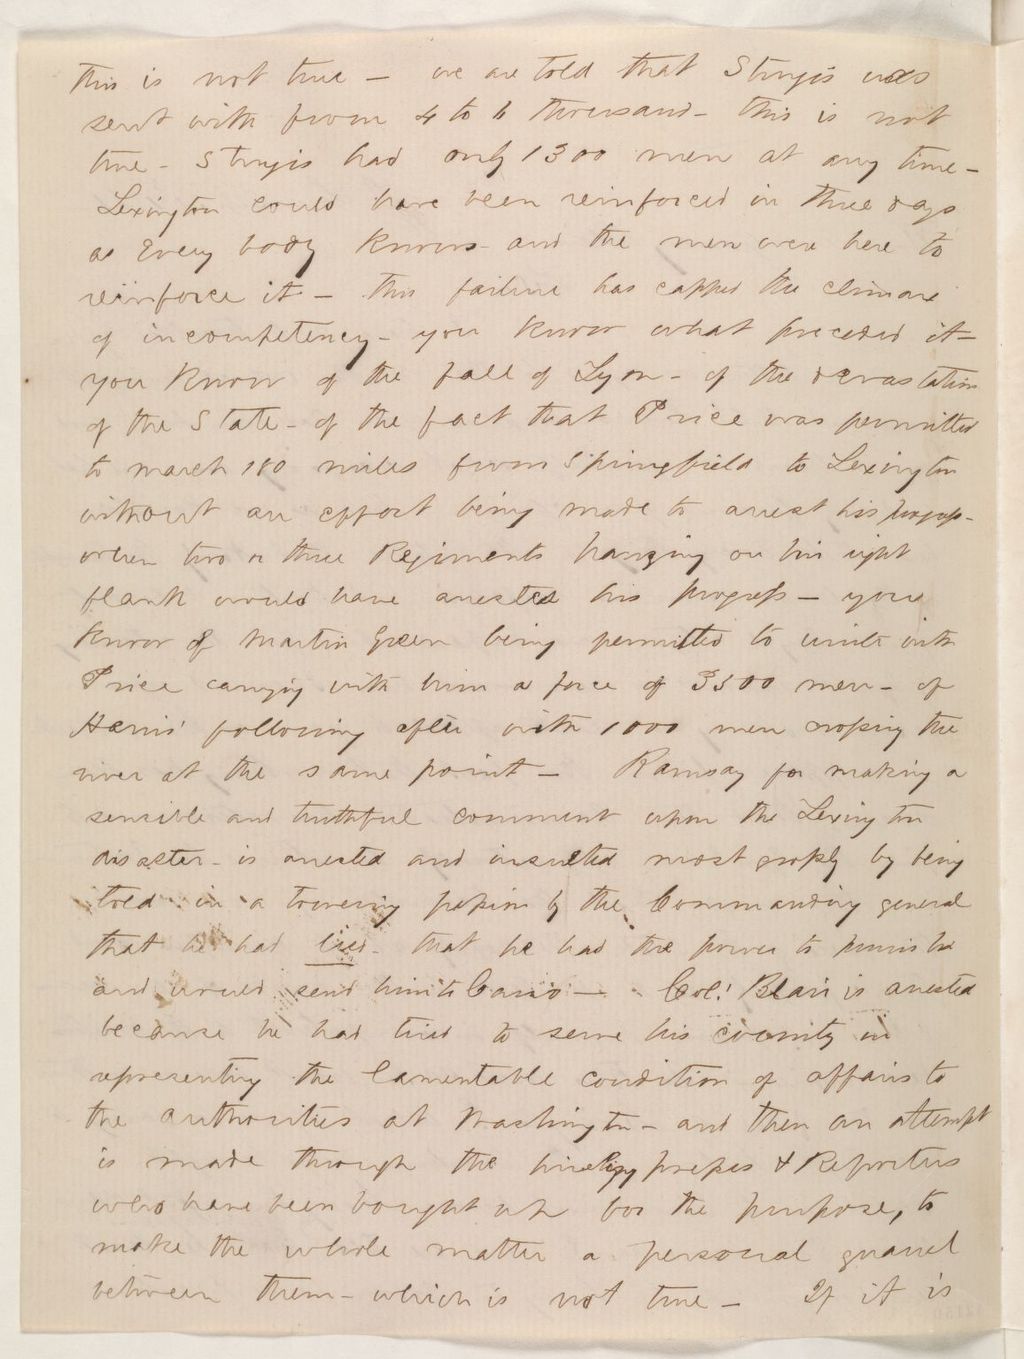 This is not true — we are told that Sturgis was
sent with from 4 to 6 thousand — this is not
true — Sturgis had only 1300 men at any time —
Lexington could have been reinforced in three days
as Every body knows — and the men were here to
reinforce it — this failure has capped the climax
of incompetency — you know what preceded it —
you know of the fall of Lyon — of the devastation
of the State — of the fact that Price was permitted
to march 180 miles from Springfield to Lexington
without an effort being made to arrest his progress —
when two or three Regiments hanging on his right
flank would have arrested his progress — you
know of Martin Green being permitted to unite with
Price carrying with him a force of 3500 men — of
Harris' following after with 1000 men crossing the
river at the same point — Ramsay for making a
sensible and truthful comment upon the Lexington
disaster — is arrested and insulted most grossly by being
told in a towering passion by the Commanding general
that he had lied — that he had the power to punish
and would send him to Cairo — Col: Blair is arrested
because he had tried to serve his country in
representing the lamentable condition of affairs to
the authorities at Washington — and then an attempt
is made through the hireling presses & Reporters
who have been bought up for the purpose, to
make the whole matter a personal quarrel
between them — which is not true — If it is